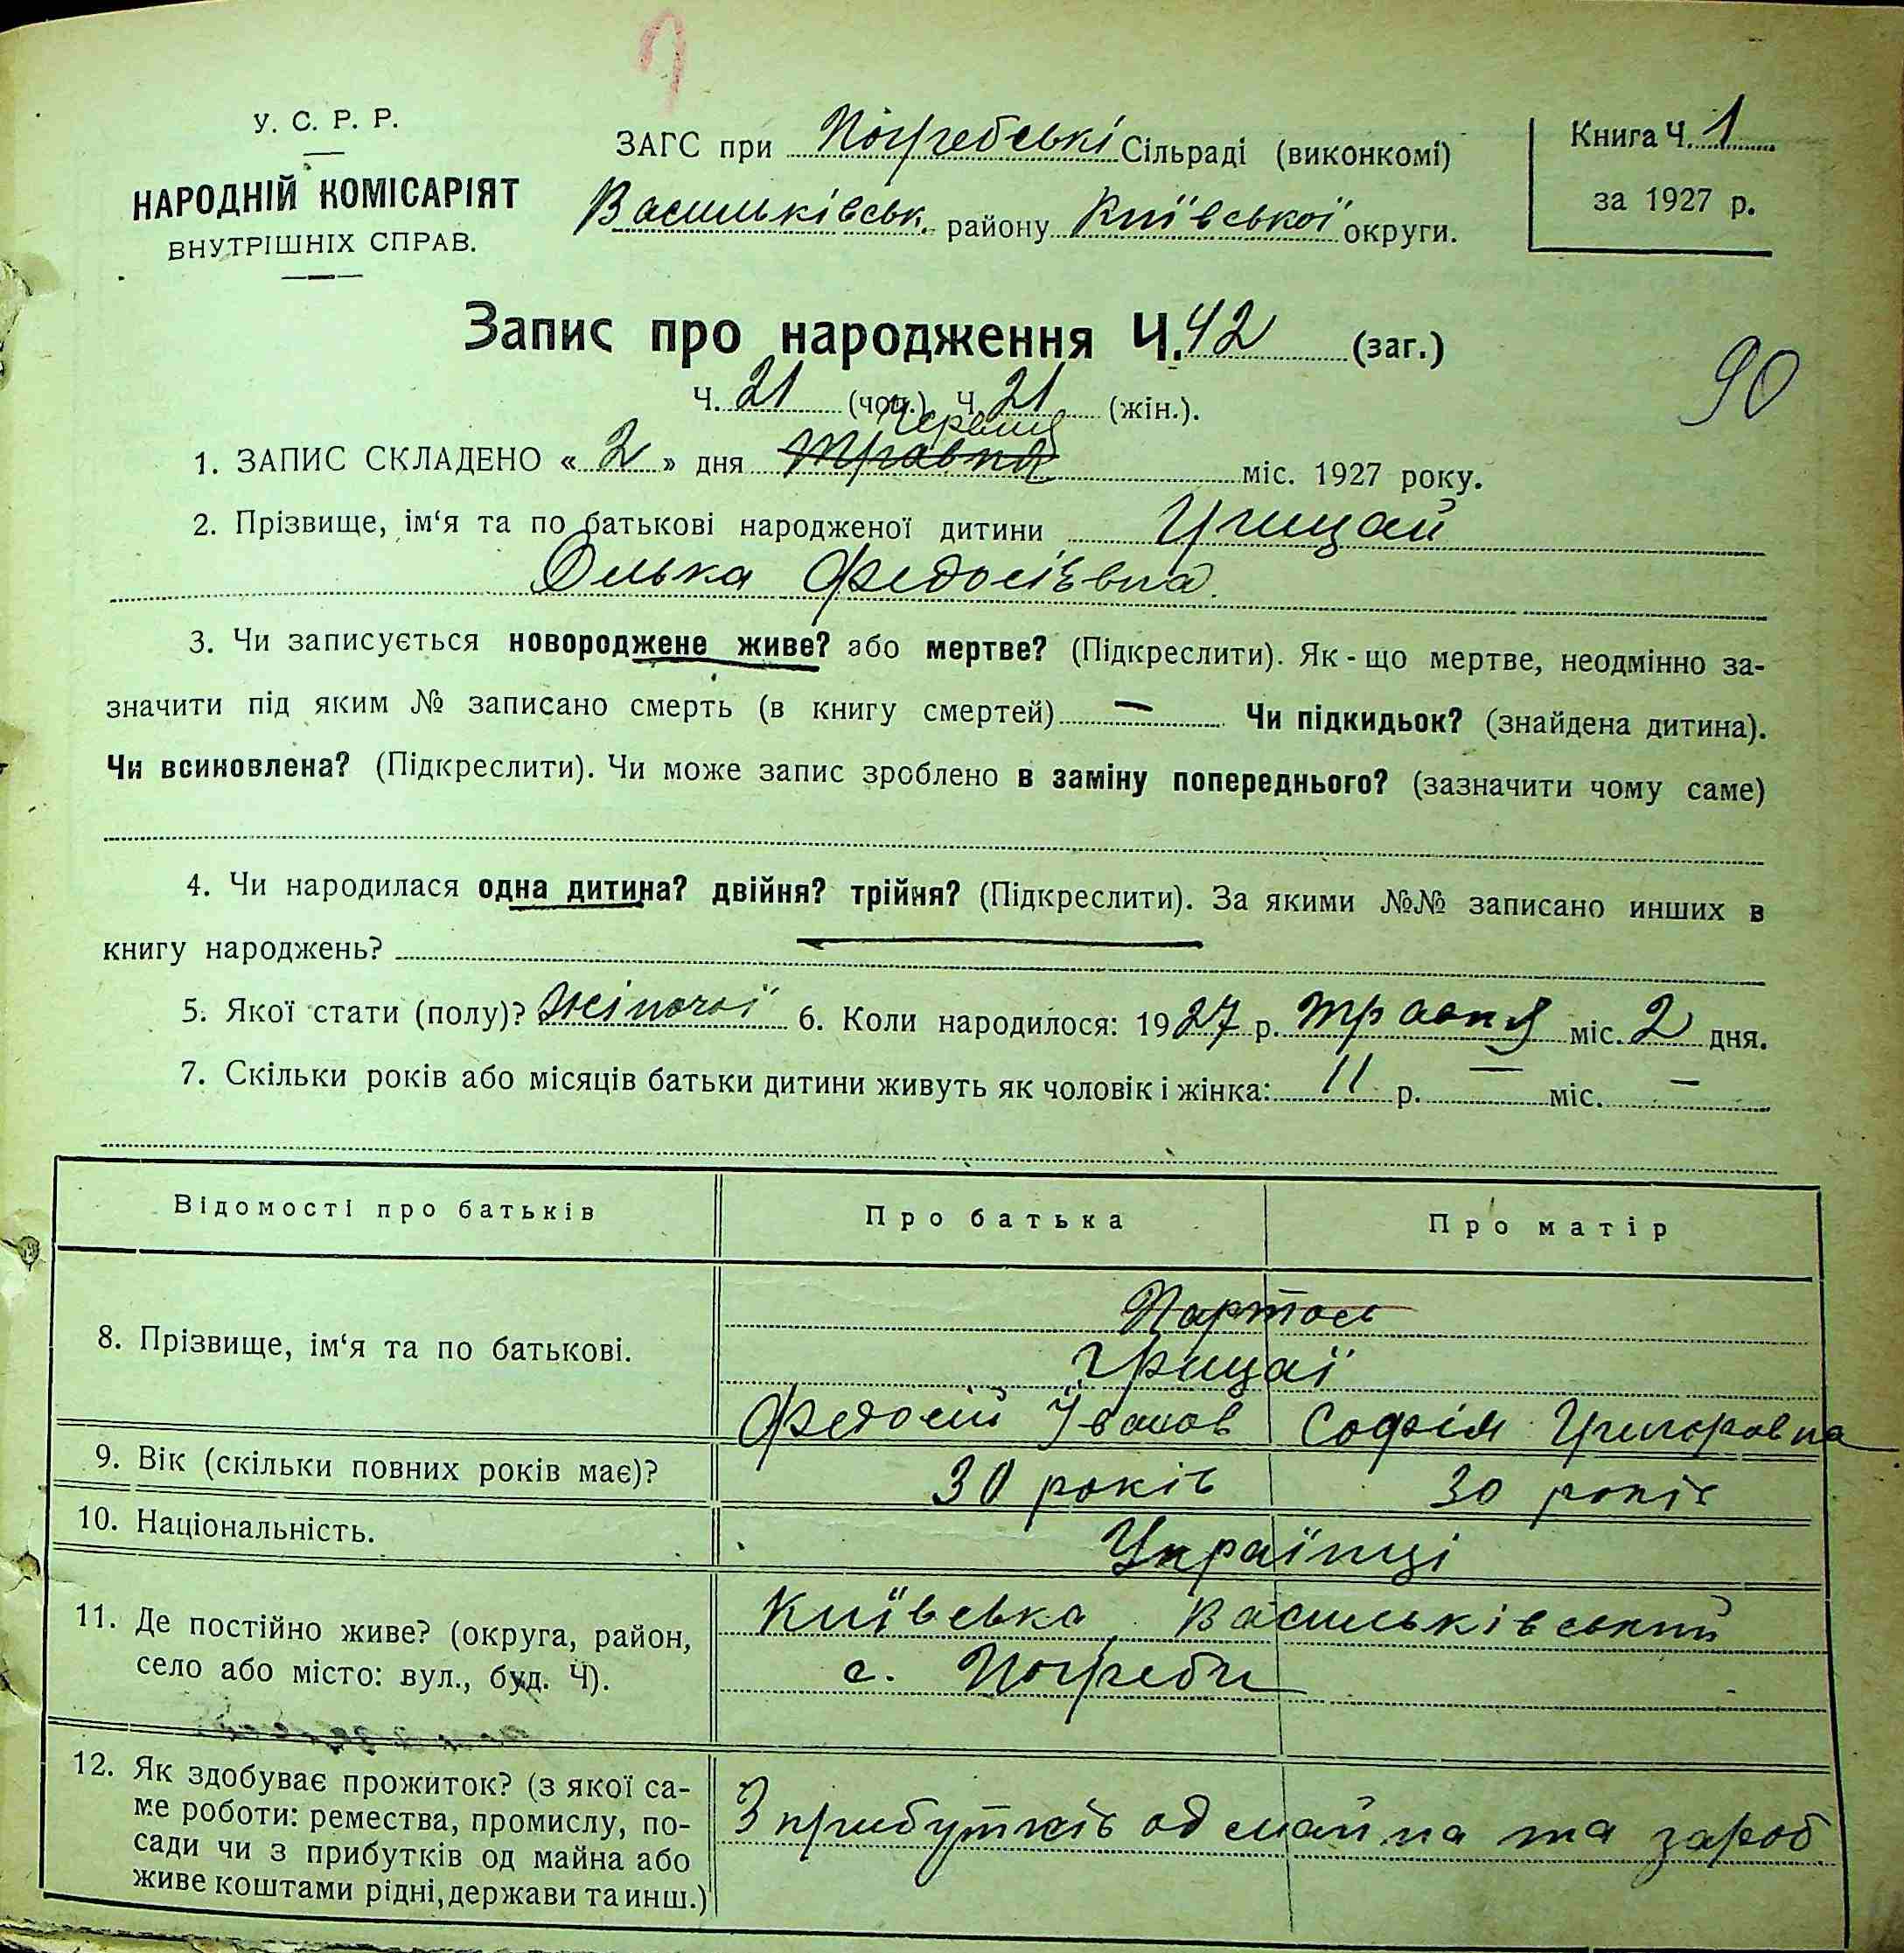 У. С. Р. Р.
НАРОДНІЙ КОМІСАРІЯТ
ВНУТРІШНІХ СПРАВ.
ЗАГС при Погребські Сільраді (виконкомі)
Васильківськ. району Київської округи.
Книга Ч. 1
за 1927 р.
Запис про народження Ч. 42 (заг.)
90
Ч. 21 (чол.) Ч. 21 (жін.).
Червня
1. ЗАПИС СКЛАДЕНО « 2 » дня Травня міс. 1927 року.
2. Прізвище, ім‘я та по батькові народженої дитини Грицай
Олька Федосіївна.
3. Чи записується новороджене живе? або мертве? (Підкреслити). Як - що мертве, неодмінно за-
значити під яким № записано смерть (в книгу смертей) — Чи підкидьок? (знайдена дитина).
Чи всиновлена? (Підкреслити). Чи може запис зроблено в заміну попереднього? (зазначити чому саме)
4. Чи народилася одна дитина? двійня? трійня? (Підкреслити). За якими №№ записано инших в
книгу народжень? —
5. Якої стати (полу)? Жіночої 6. Коли народилося: 1927 р. Травня міс. 2 дня.
7. Скільки років або місяців батьки дитини живуть як чоловік і жінка: 11 р. — міс. —
Відомості про батьків Про батька Про матір
8. Прізвище, ім‘я та по батькові.
Грицаї
Федосій Іванов Софія Григоровна
9. Вік (скільки повних років має)? 30 років 30 років
10. Національність. Українці
11. Де постійно живе? (округа, район,
село або місто: вул., буд. Ч).
Київська Васильківський
с. Погреби
12. Як здобуває прожиток? (з якої са-
ме роботи: ремества, промислу, по-
сади чи з прибутків од майна або
живе коштами рідні, держави та инш.)
З прибутків од майна та зароб